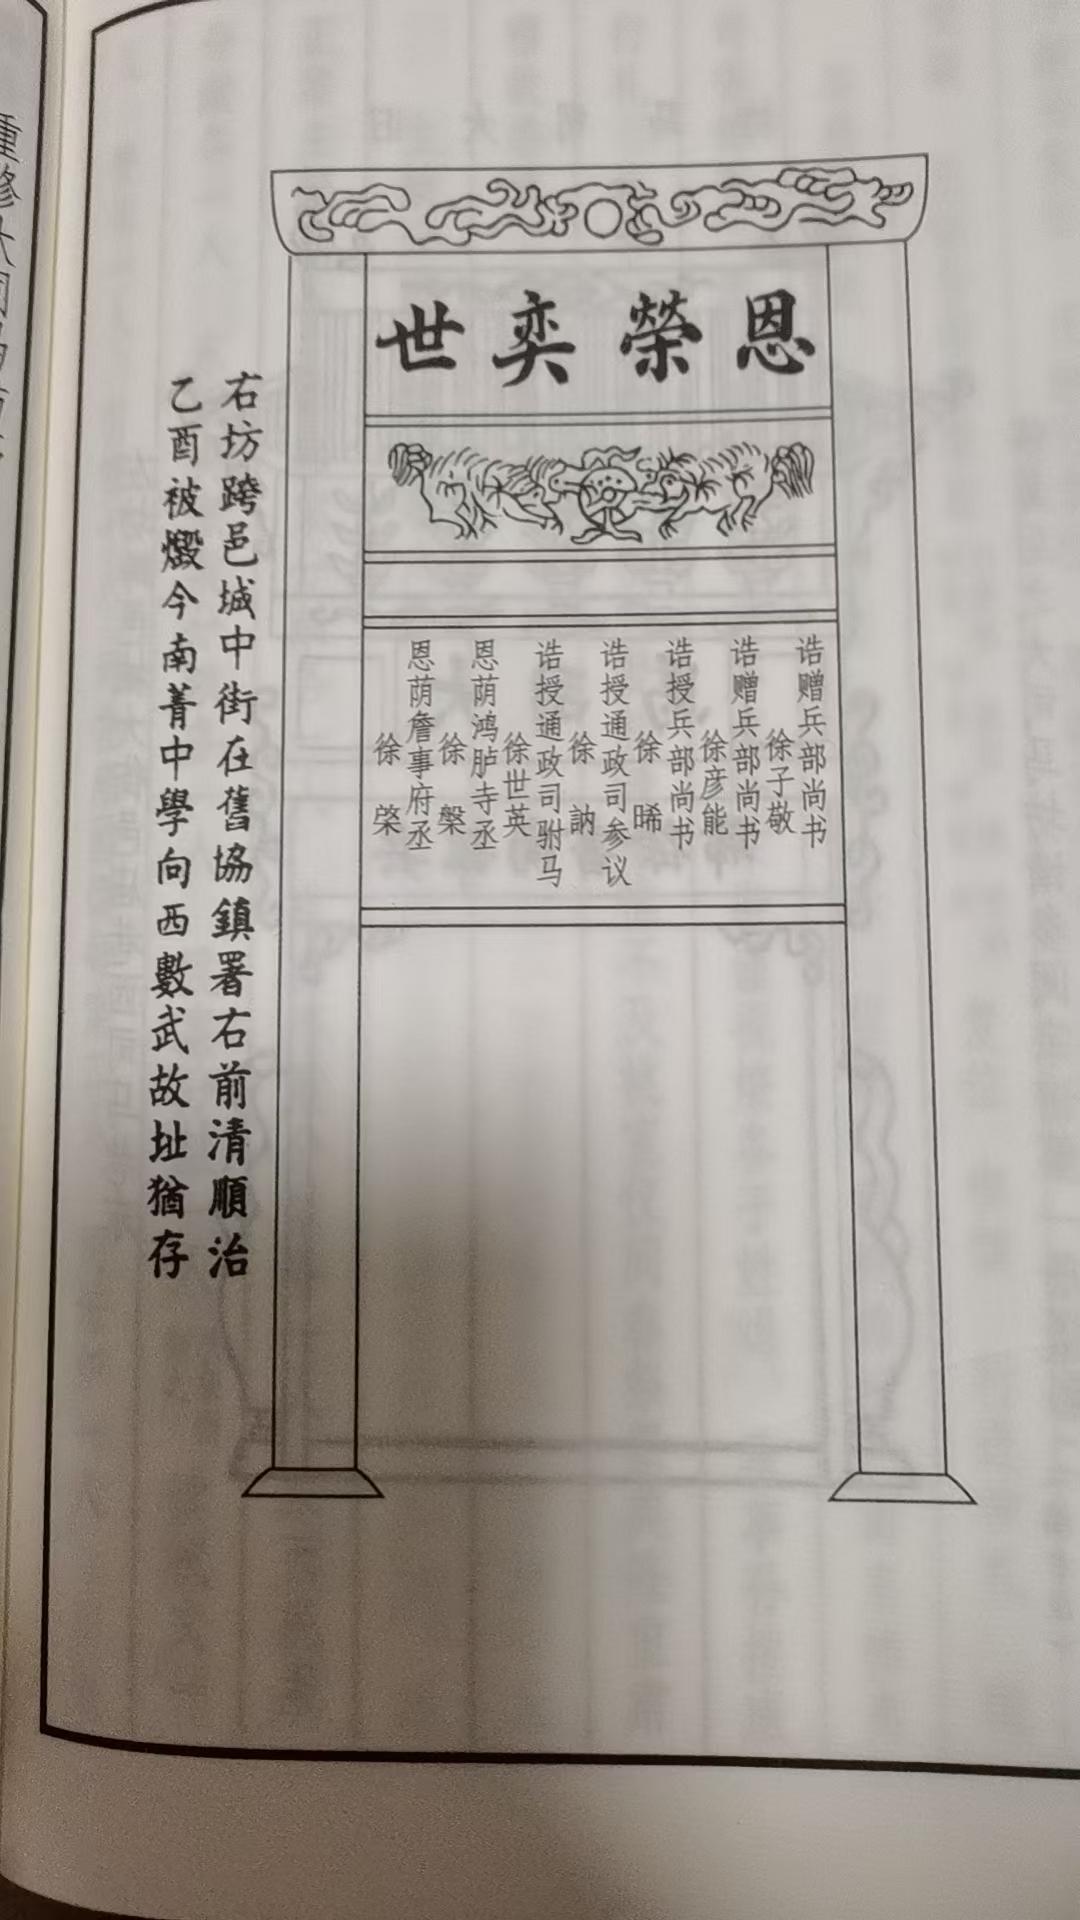 恩榮奕世
诰赠兵部尚书
徐子敬
诰赠兵部尚书
徐彦能
诰授兵部尚书
徐晞
诰授通政司参议
徐訥
诰授通政司驸马
徐世英
恩荫鸿胪寺丞
徐槃
恩荫詹事府丞
徐棨
右坊跨邑城中街在舊協鎮署右前清順治
乙酉被燬今南菁中學向西數武故址猶存